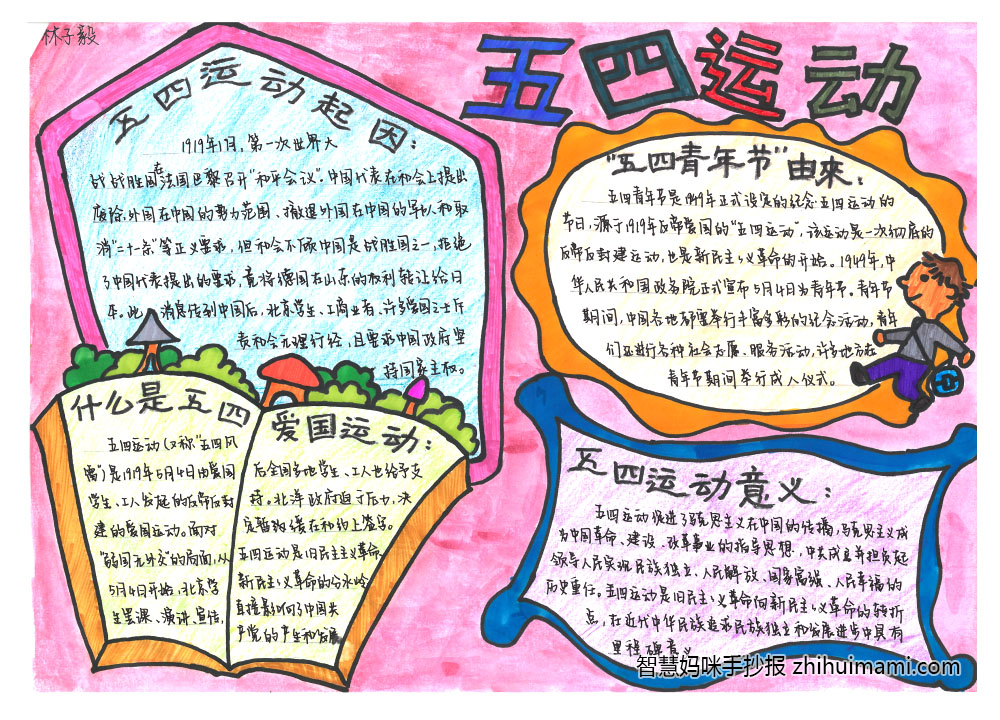 林子毅
五四运动
五四运动起因：
1919年1月，第一次世界大
战战胜国在法国巴黎召开"和平会议"。中国代表在和会上提出
废除外国在中国的势力范围、撤退外国在中国的军队和取
消"二十一条"等正义要求，但和会不顾中国是战胜国之一，拒绝
了中国代表提出的要求，竟将德国在山东的权利转让给日
本。此消息传到中国后，北京学生、工商业者、许多爱国之士斥
责和会无理行经，且要求中国政府坚
持国家主权。
"五四青年节"由来：
五四青年节是1949年正式设定的纪念五四运动的
节日，源于1919年反帝爱国的"五四运动"，该运动是一次彻底的
反帝反封建运动，也是新民主主义革命的开始。1949年，中
华人民共和国政务院正式宣布5月4日为青年节。青年节
期间，中国各地都要举行丰富多彩的纪念活动，青年
们还进行各种社会志愿、服务活动，许多地方在
青年节期间举行成人仪式。
什么是五四
爱国运动：
五四运动（又称"五四风
雷"）是1919年5月4日由爱国
学生、工人发起的反帝反封
建的爱国运动。面对
"弱国无外交"的局面，从
5月4日开始，北京学
生罢课、演讲、宣传，
后全国各地学生、工人也给予支
持。北洋政府迫于压力，决
定暂缓在和约上签字。
五四运动是旧民主主义革命
新民主主义革命的分水岭
直接影响了中国共
产党的产生和发展
五四运动意义：
五四运动促进了马克思主义在中国的传播，马克思主义成
为中国革命、建设、改革事业的指导思想，中共成立并担负起
领导人民实现民族独立、人民解放、国家富强、人民幸福的
历史重任。五四运动是旧民主主义革命向新民主主义革命的转折
点，在近代中华民族追求民族独立和发展进步中具有
里程碑意义
智慧妈咪手抄报 zhihuimami.com